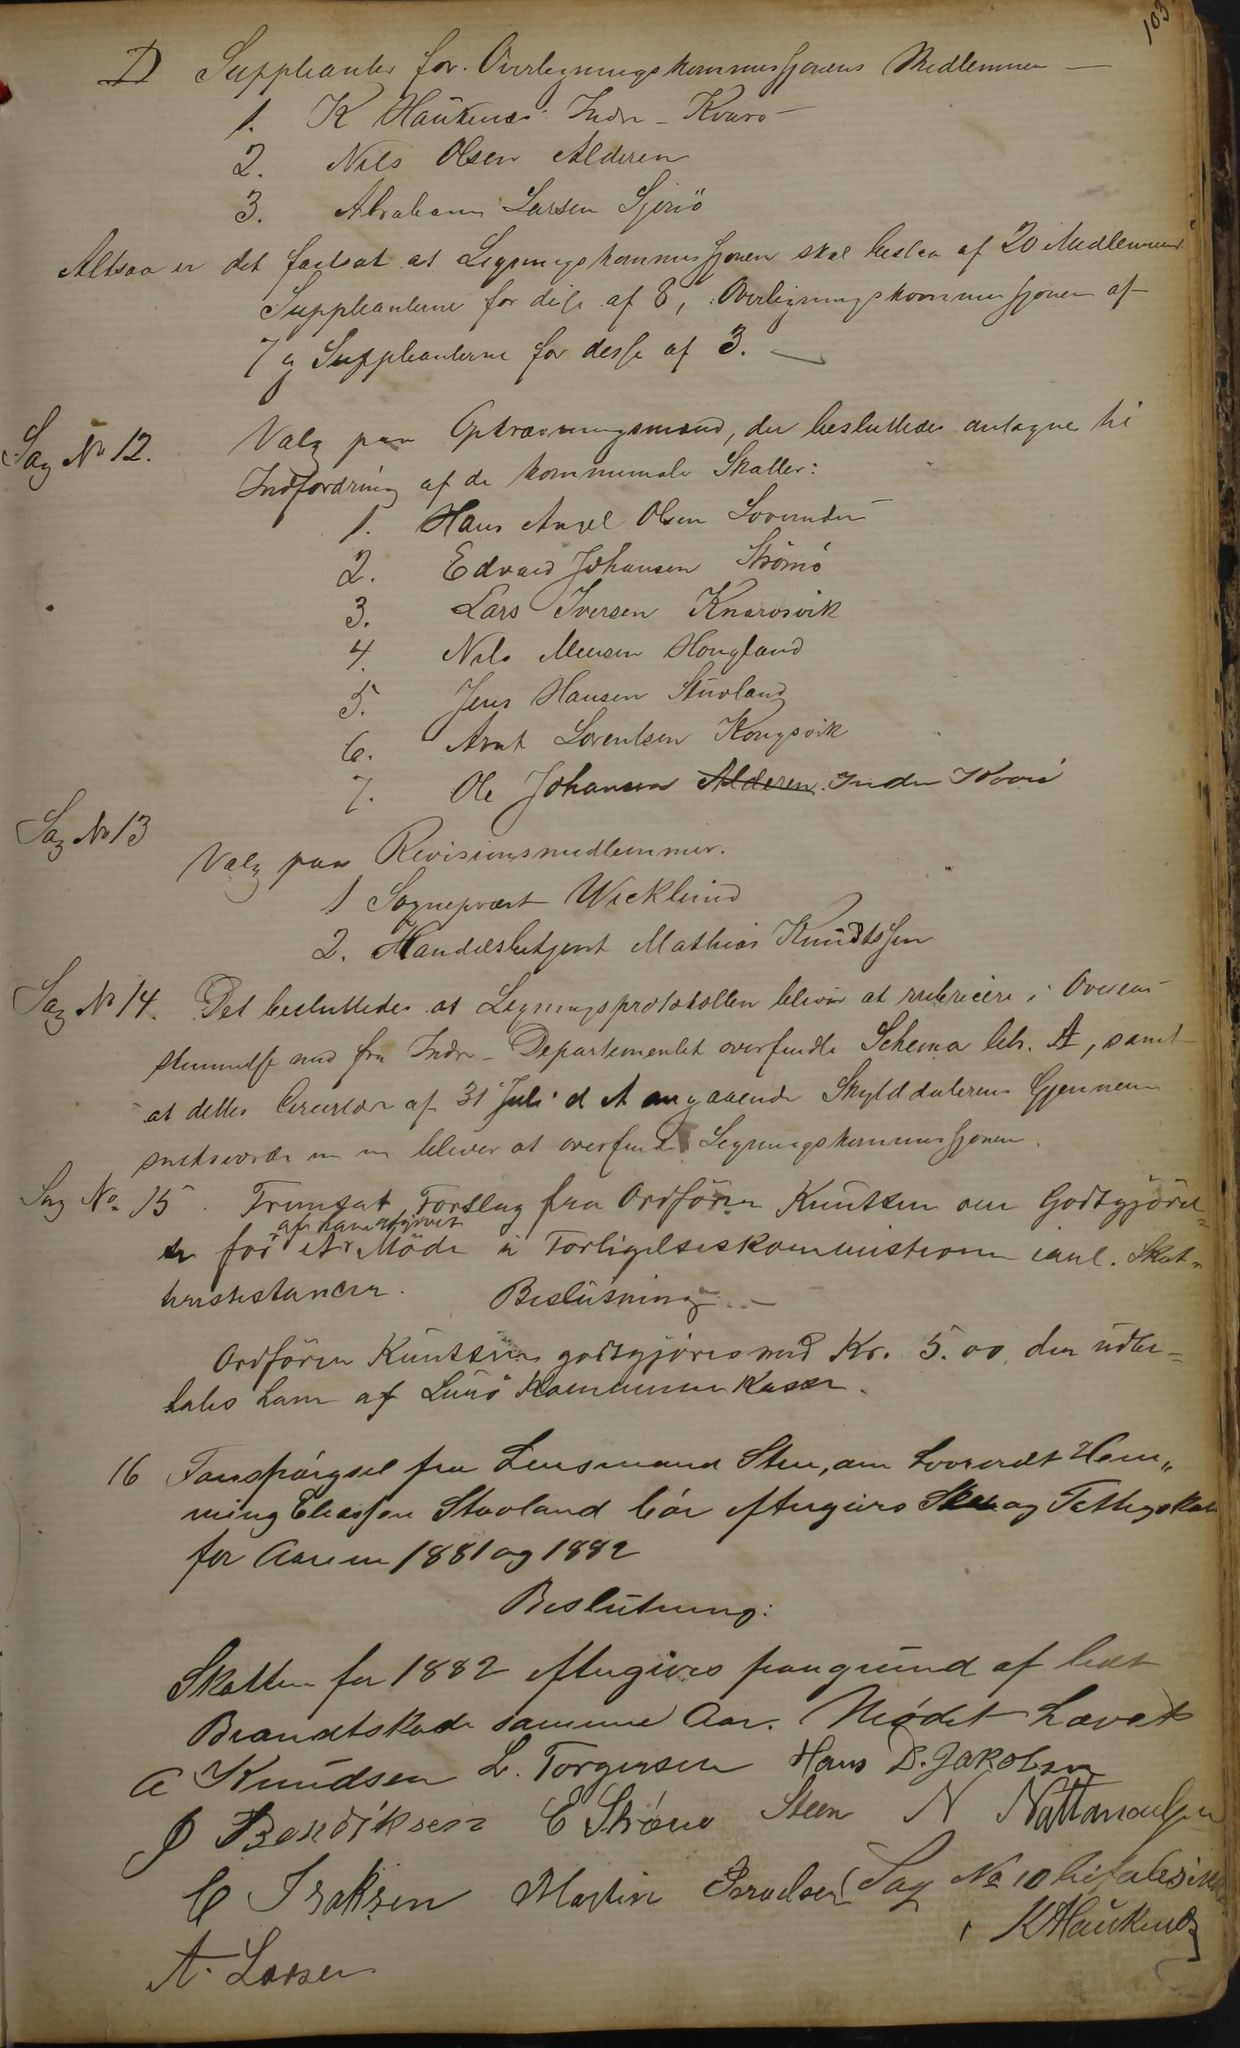 103
D Suppleanter for Overligningskommissjonens Medlemmer —
1. K Haukenæs Indr - Kvarø
2. Nils Olsen Alderen
3. Abraham Larsen Sjonö
Altsaa er det fastsat at Ligningskommissjonen skal bestaa af 20 Medlemmer
Suppleanterne for disse af 8, Overligningskommissjonen af
7 og Suppleanterne for desse af 3. —
Sag No 12. Valg paa Opkrævningsmænd, der besluttedes antagne til
Indfordring af de kommunale Skatter:
1. Hans Angel Olsen Lovunden
2. Edvard Johansen Strömö
3. Lars Iversen Knarosvik
4. Nils Monsen Hougland
5. Jens Hansen Stuvland
6. Arnt Lorentsen Kongsvik
7. Ole Johansen Alderen Indre Kvarö
Sag No 13
Valg paa Revisionsmedlemmer.
1 Sogneprest Wicklund
2. Handelsbetjent Mathias Knudtssen
Sag No 14. Det besluttedes at Ligningsprotokollen bliver at rubricere i Overens
stemmelse med fra Indre-Departementet oversendte Schema litr. A, samt
at dettes Circulære af 31 Juli d A angaaende Skylddalerens Gjennem
snitsværdi m m bliver at oversende Ligningskommissjonen.
Sag No. 15. Fremsat Forslag fra Ordförer Knutsen om Godtgjörel=
se for af ham afgivet et Möde i Forligelseskommissionen anl. Skat=
terestancer. Beslutning: —
Ordförer Knutsen godtgjöres med Kr. 5.00, der udbe=
tales ham af Lurö Kommunekasse.
16 Forespörgsel fra Lensmand Steen, om hvorvidt Hem„
ming Eliassen Stuvland bör eftergives Skole og Fattigskat
for Aarene 1881 og 1882
Beslutning:
Skatten for 1882 eftergives paagrund af havt
Brandtskade samme Aar. Mödet hævet
A Knudsen L. Torgersen Hans D. Jakobsen
J Bendiksen E Ström Steen N Nattanaelsen
C Isaksen Martin Israelsen Sag No 10 bifales ikke
K Haukenæs
A. Larsen